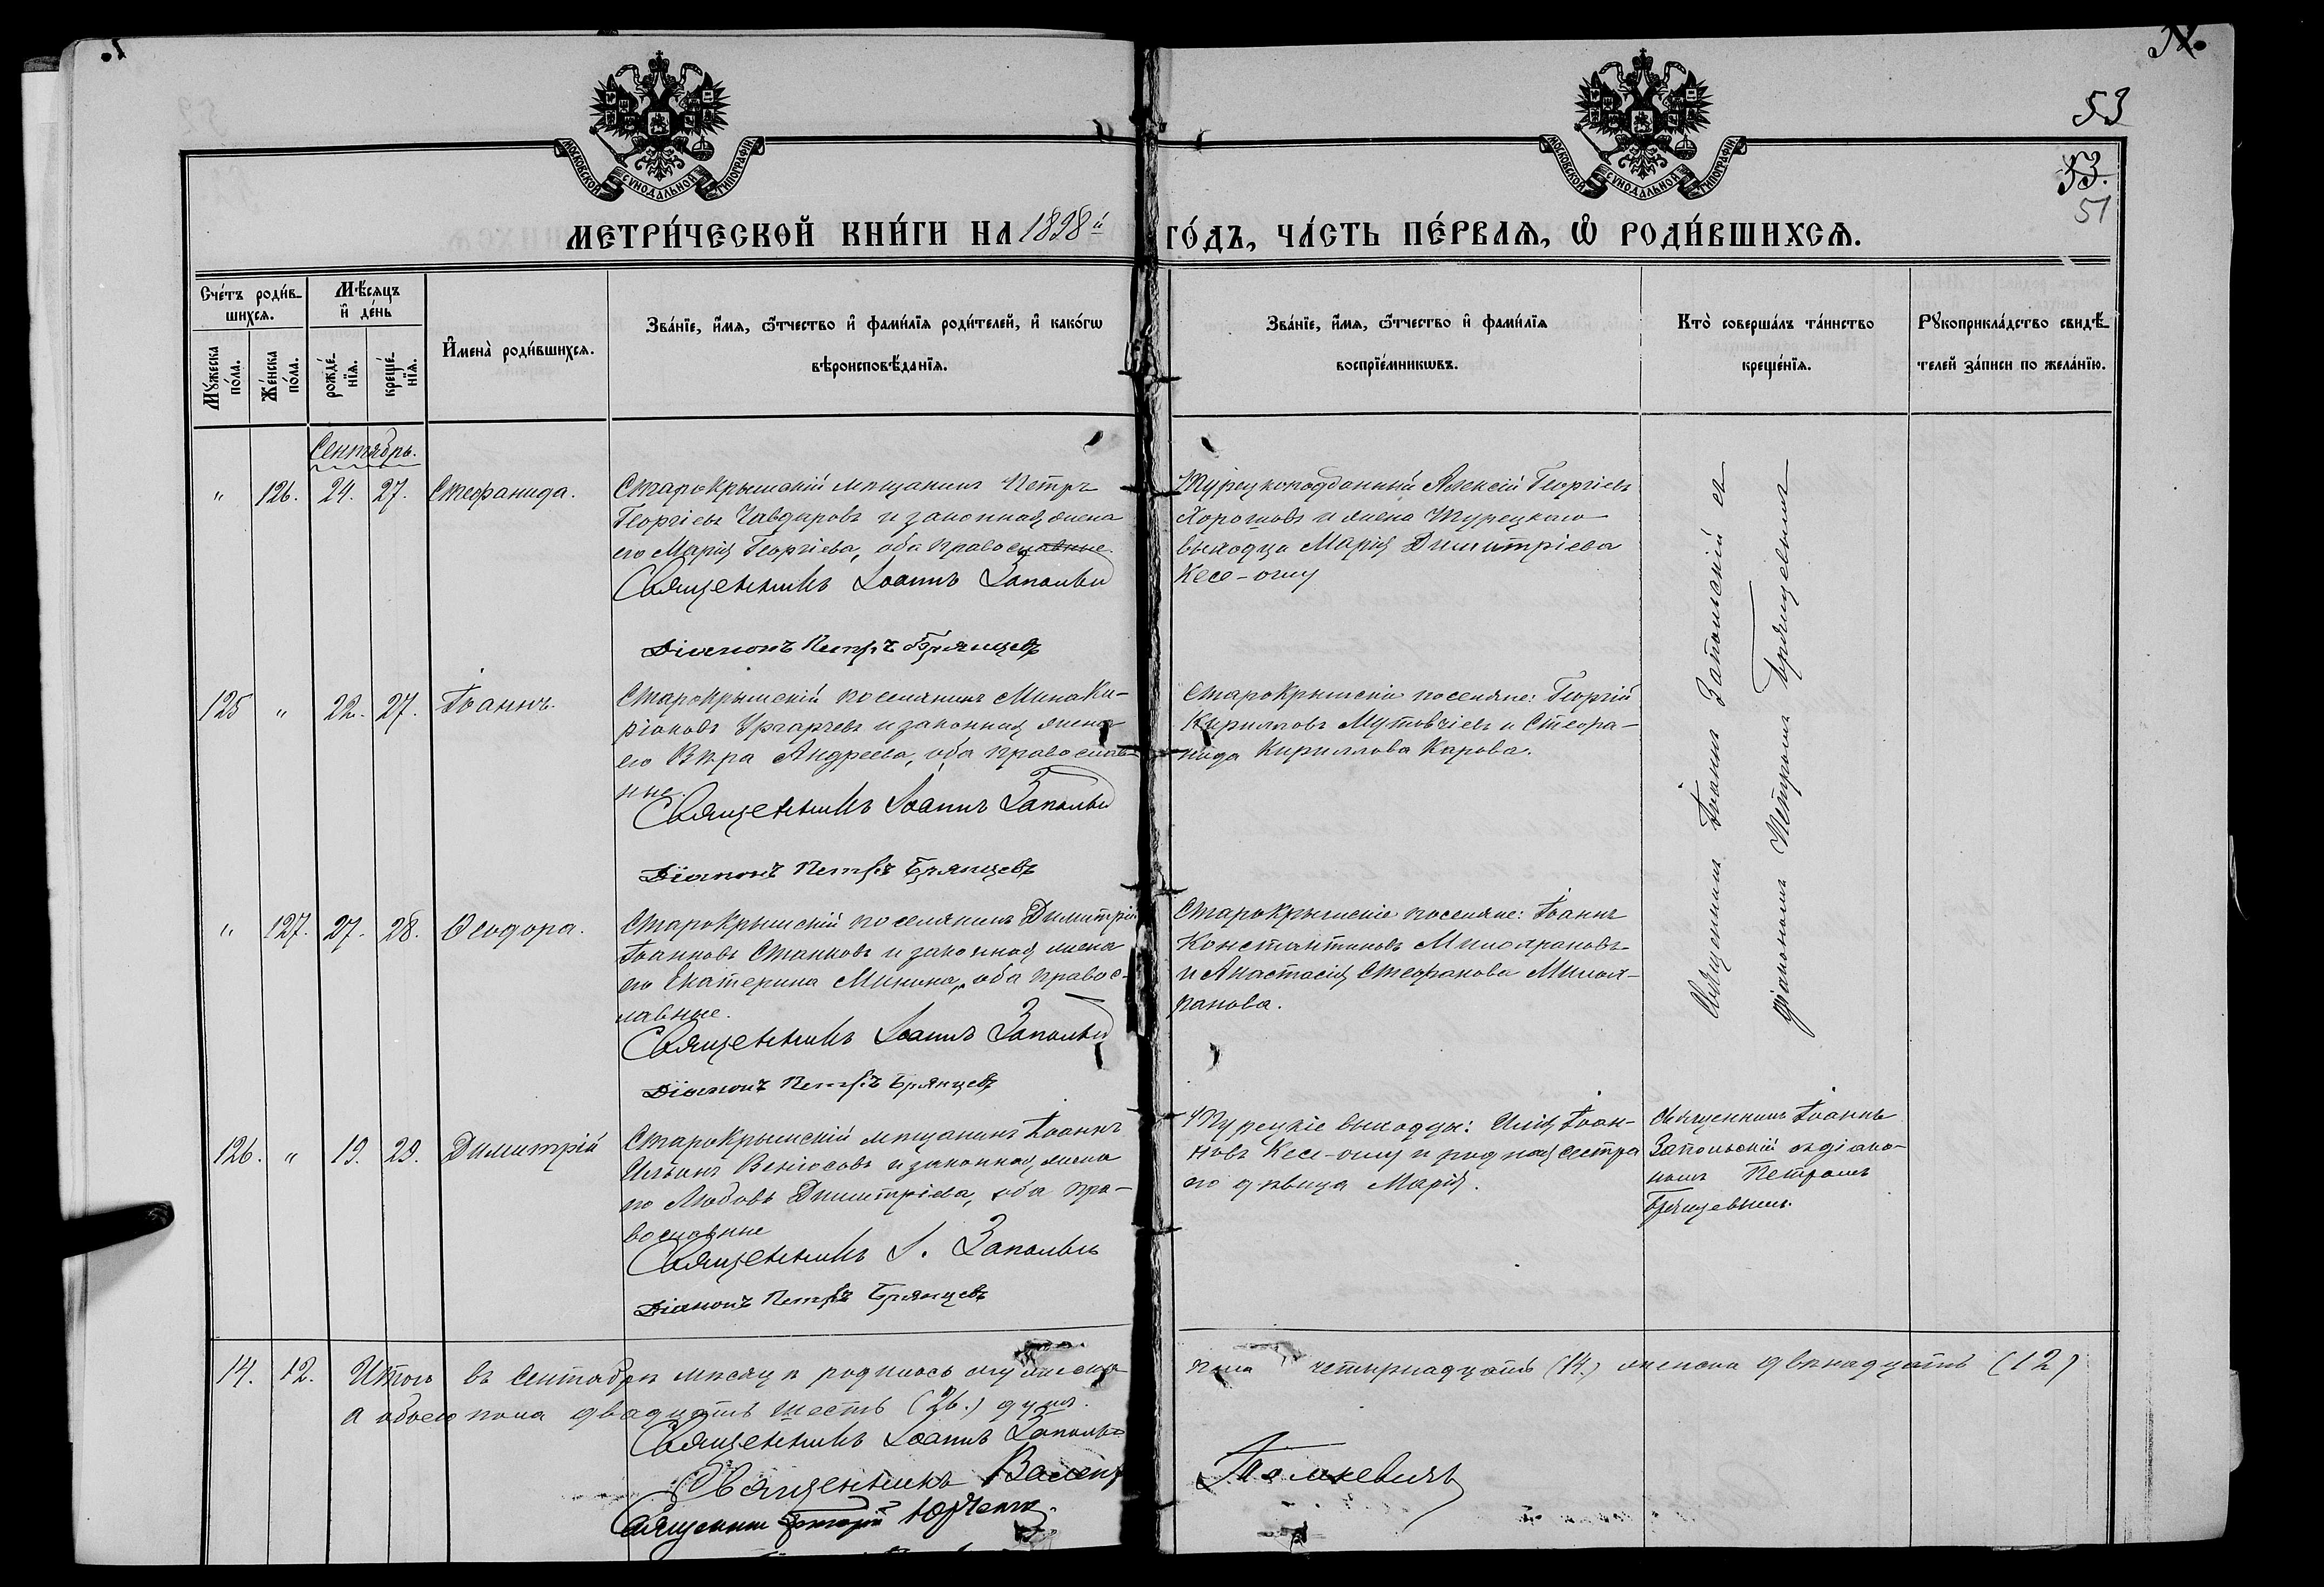 53
53.
51
МОСКОВСКОЙ СѴНОДАЛЬНОЙ ТИПОГРАФІИ
МОСКОВСКОЙ СѴНОДАЛЬНОЙ ТИПОГРАФІИ
МЕТРИ́ЧЕСКОЙ КНИ́ГИ НА 1898й ГО́ДЪ, ЧА́СТЬ ПЕ́РВАѦ, Ѡ҆ РОДИ́ВШИХСѦ.
Сче́тъ роди́в-
шихсѧ.
Мꙋжеска
по́ла.
Же́нска
по́ла.
Мѣ́сѧцъ
и҆ де́нь
рожде́-
нїѧ.
креще́-
нїѧ.
И҆мена̀ роди́вшихсѧ.
Зва́нїе, и҆́мѧ, ѻ҆́тчество и҆ фами́лїѧ роди́телей, и҆ како́гѡ
вѣроисповѣ́данїѧ.
Зва́нїе, и҆́мѧ, ѻ҆́тчество и҆ фами́лїѧ
воспрїе́мникѡвъ.
Кто̀ соверша́лъ та́инство
креще́нїѧ.
Рꙋкоприкла́дство свидѣ́-
телей за́писи по жела́нїю.
Сентябрь.
" 126. 24. 27. Стефанида.
Старокрымскій мѣщанинъ Петръ
Георгіевъ Чавдаровъ и законная жена
его Марія Георгіева, оба православные.
Священникъ Іоаннъ Запольскій
Діаконъ Петръ Брянцевъ
Турецкоподданный Алексій Георгіевъ
Хорошовъ и жена Турецкаго
выходца Марія Димитріева
Кесе-оглу
Священникъ Іоаннъ Запольскій съ
діакономъ Петромъ Брянцевымъ
125 " 22. 27. Іоаннъ.
Старокрымскій поселянинъ Мина Ки-
ріаковъ Ургарчевъ и законная жена
его Вѣра Андреева, оба православ-
ные.
Священникъ Іоаннъ Запольскій
Діаконъ Петръ Брянцевъ
Старокрымскіе поселяне: Георгій
Кирилловъ Мутовчіевъ и Стефа-
нида Кириллова Карова.
" 127. 27. 28. Ѳеодора.
Старокрымскій поселянинъ Димитрій
Іоанновъ Станковъ и законная жена
его Екатерина Минина, оба правос-
лавные.
Священникъ Іоаннъ Запольскій
Діаконъ Петръ Брянцевъ
Старокрымскіе поселяне: Іоаннъ
Константиновъ Милофановъ
и Анастасія Стефанова Милоя-
ранова.
126. " 19. 29. Димитрій
Старокрымскій мѣщанинъ Іоаннъ
Ильинъ Веніосовъ и законная жена
его Любовь Димитріева, оба пра-
вославные
Священникъ І. Запольскій
Діаконъ Петръ Брянцевъ
Турецкіе выходцы: Илія Іоан-
новъ Кесе-оглу и родная сестра
его дѣвица Марія.
Священникъ Іоаннъ
Запольскій съ діако-
номъ Петромъ
Брянцевымъ.
14. 12. Итого въ Сентябрѣ мѣсяцѣ родилось мужеска пола четырнадцать (14.) женска двѣнадцать (12)
а обоего пола двадцать шесть (26.) душъ.
Священникъ Іоаннъ Запольскій
Священникъ
Священникъ Юрченко.